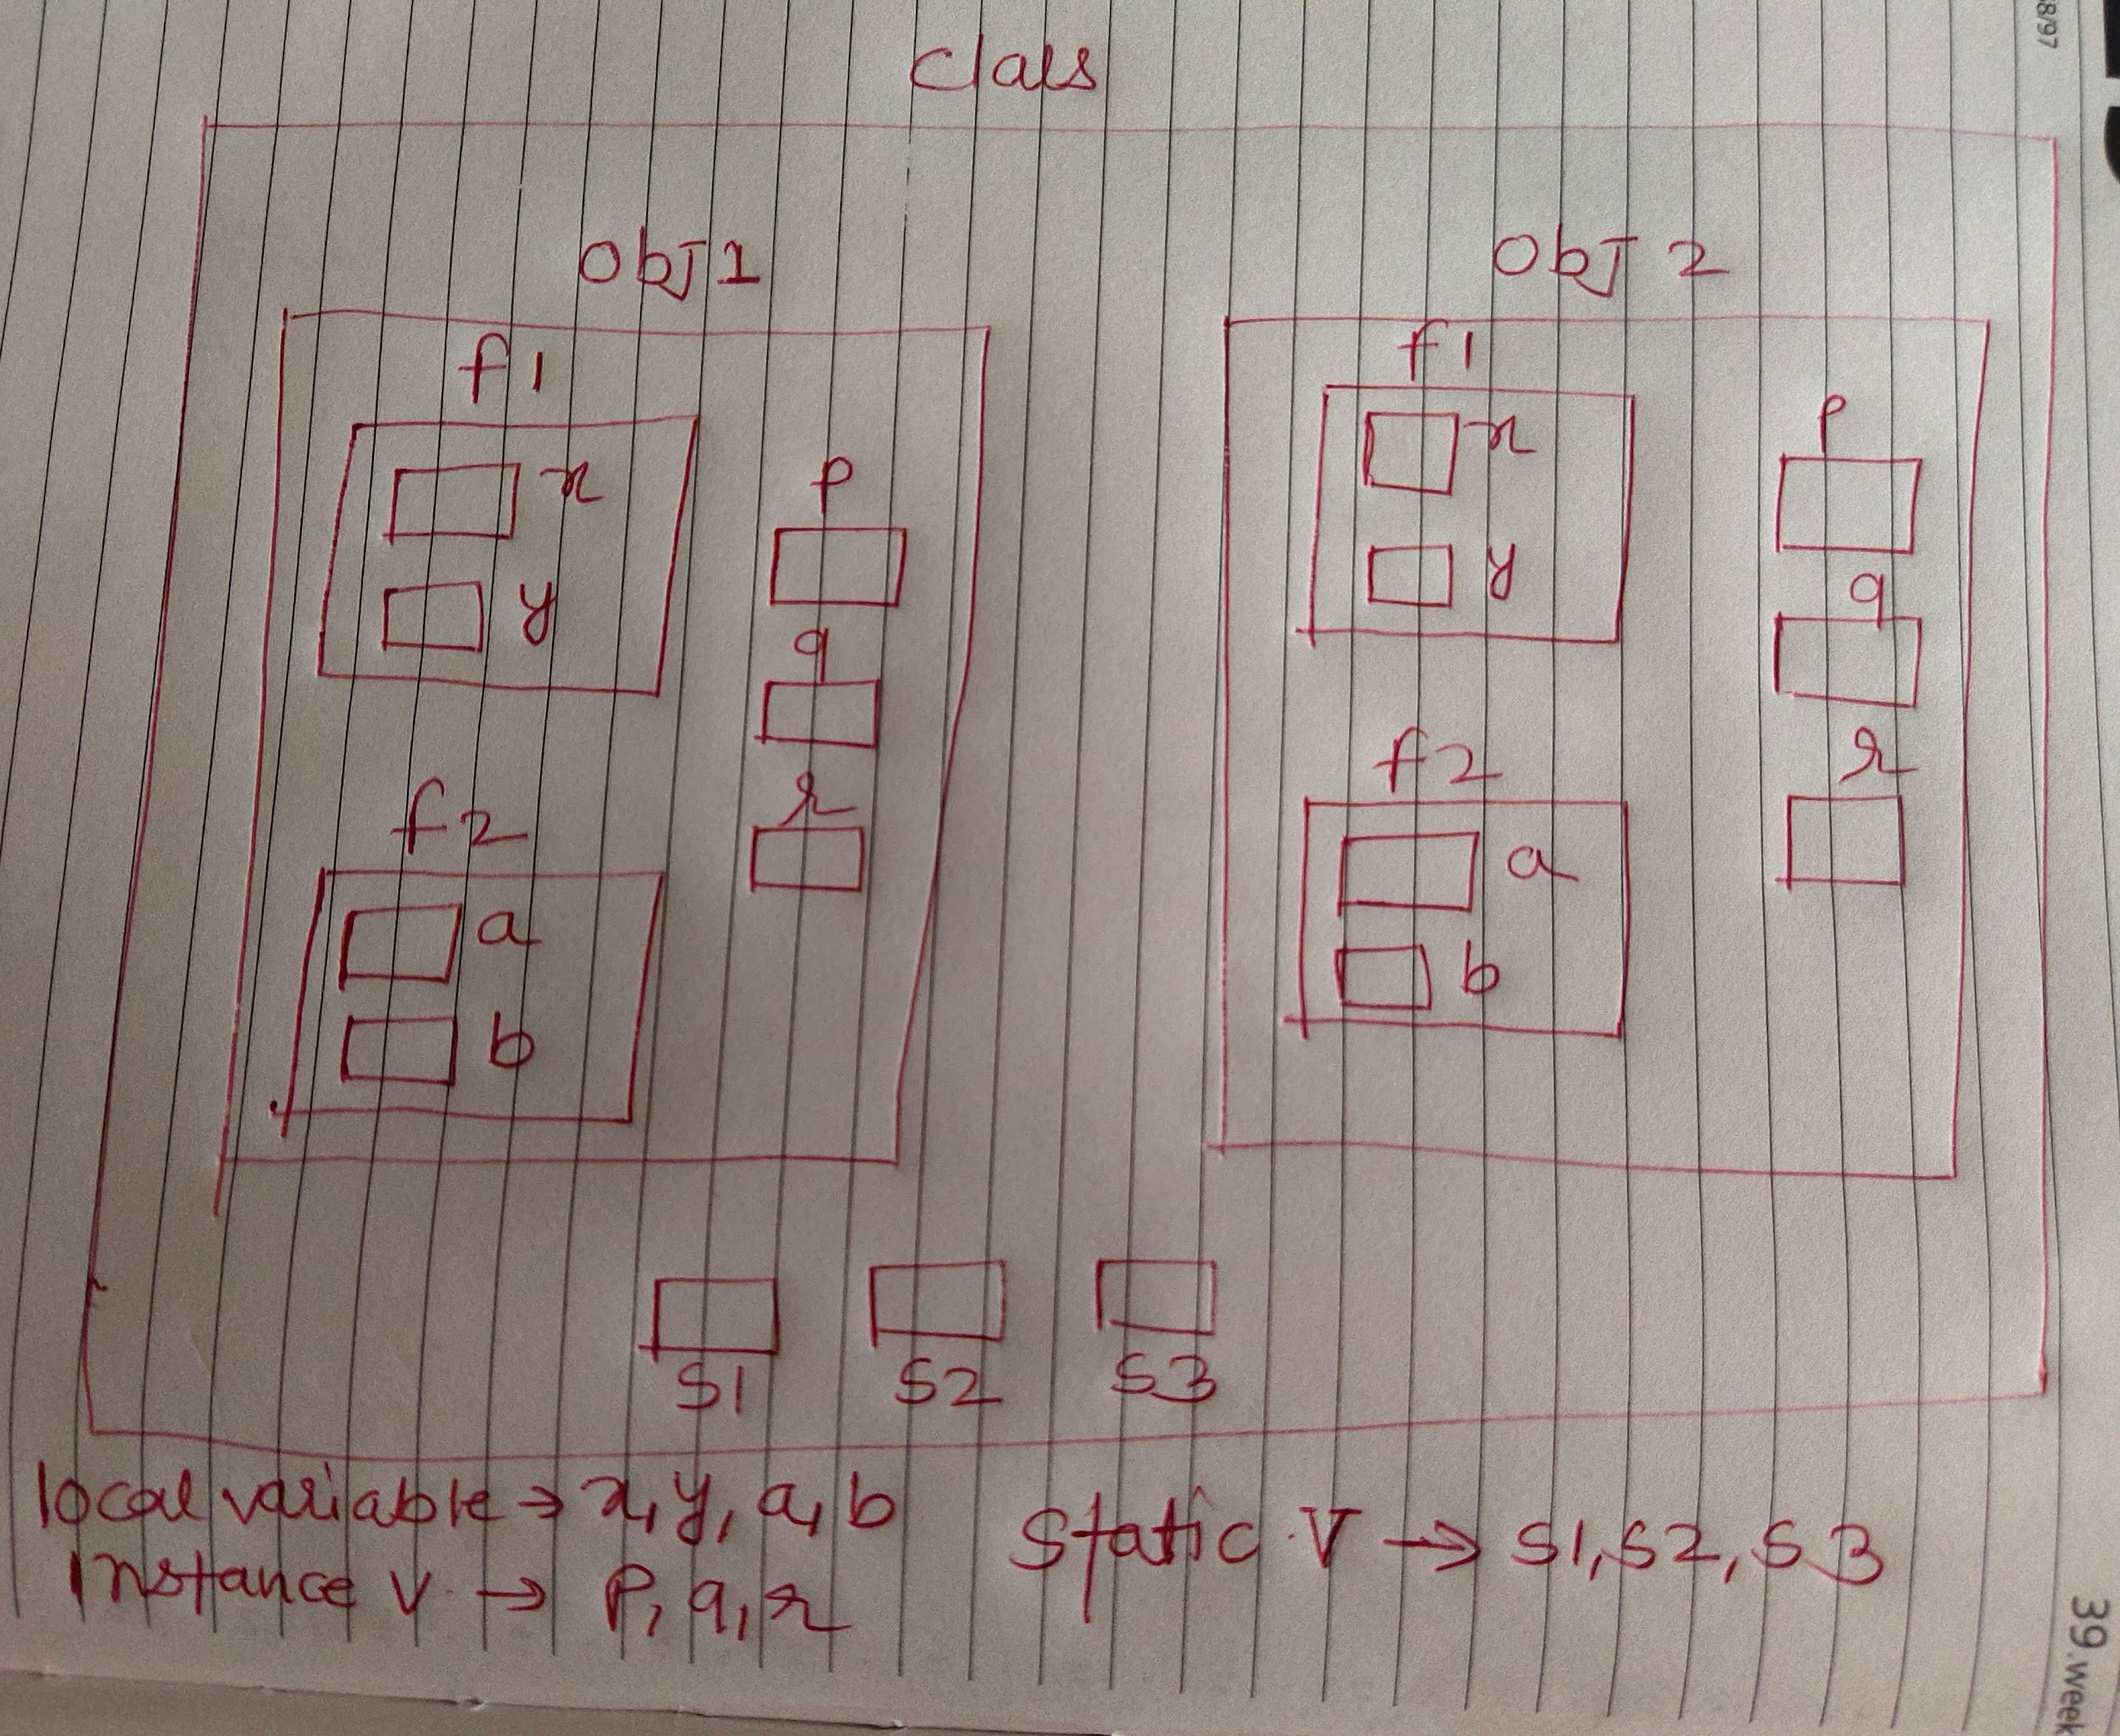 Class
Obj 1
Obj 2
f1
x
y
p
q
r
f2
a
b
f1
x
y
p
q
r
f2
a
b
S1 S2 S3
local variable → x, y, a, b
Instance v. → p, q, r
Static V → S1, S2, S3
8/97
39.week